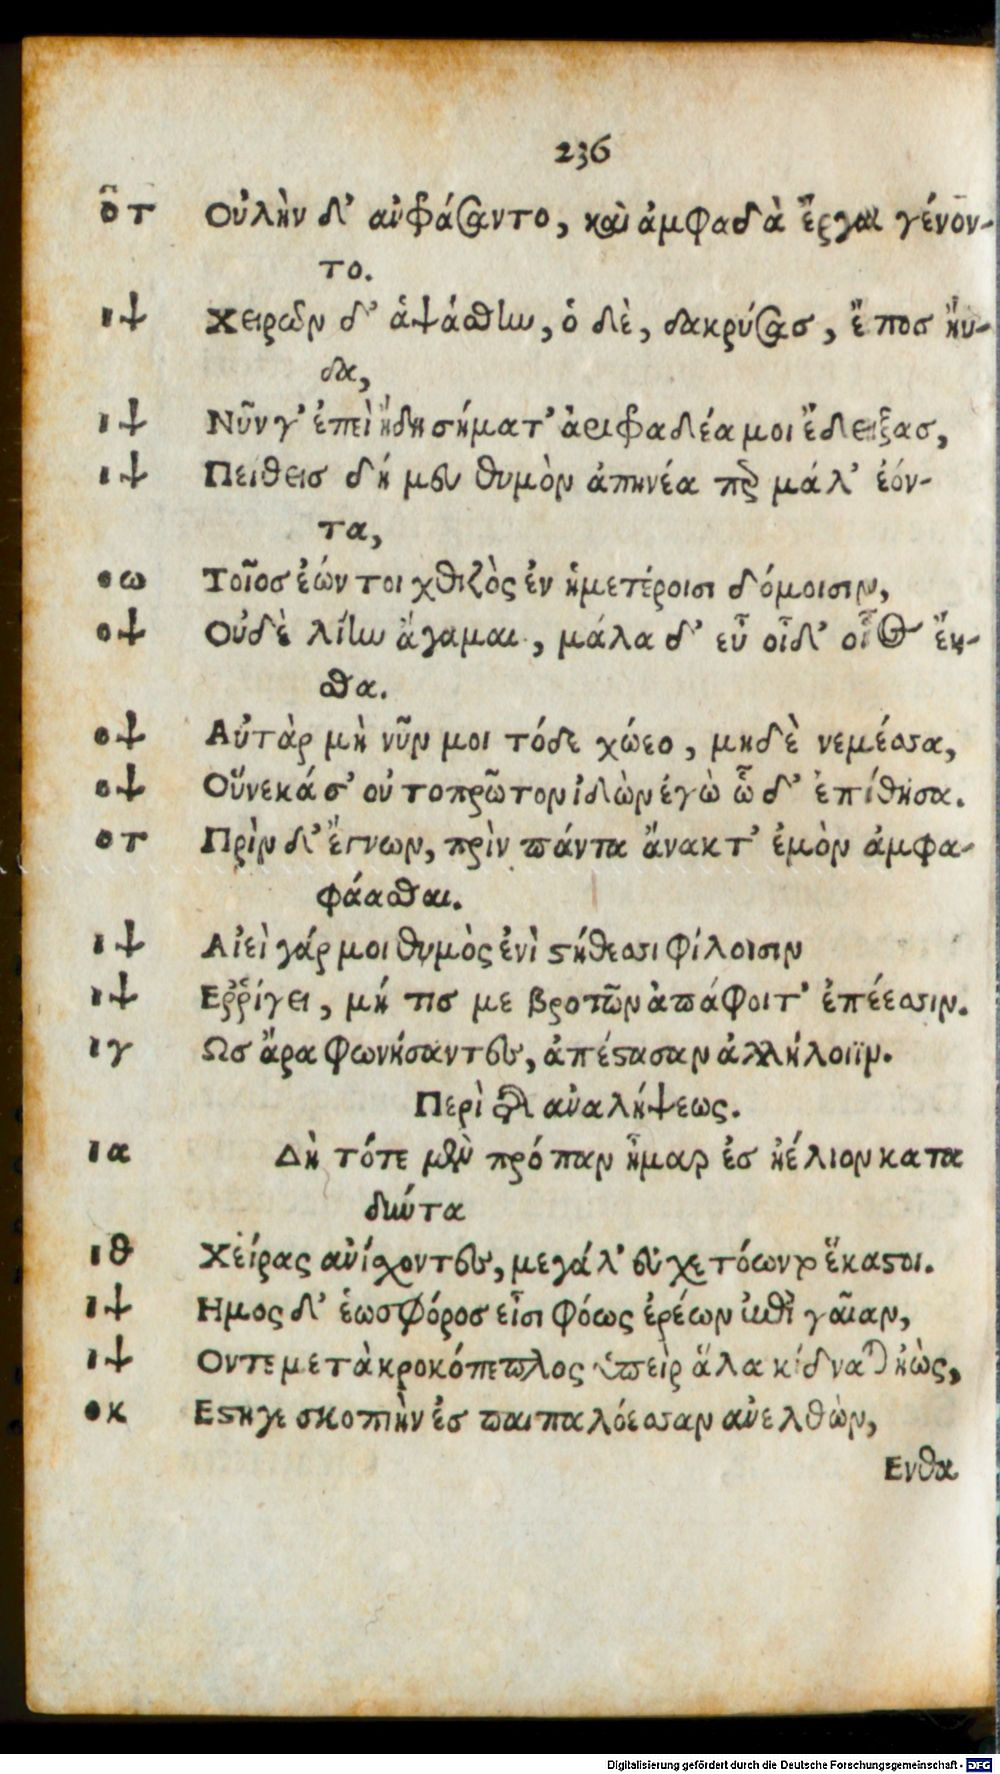 236
ὃτ Οὐλὴν δ’ ἀμφράσαντο, καὶ ἀμφαδὰ ἔργα γένον-
το.
ιψ Χειρῶν δ’ ἁψάσθην, ὁ δὲ, δακρύσασ, ἔποσ ἤυ-
δα,
ιψ Νῦν γ’ ἐπεὶ ἤδη σήματ’ ἀριφραδέα μοι ἔδειξασ,
ιψ Πείθεισ δή μευ θυμὸν ἀπηνέα περ μάλ’ ἐόν-
τα,
οω Τοῖοσ ἐών τοι χθιζὸς ἐν ἡμετέροισι δόμοισιν,
οψ Οὐδὲ λίην ἄγαμαι, μάλα δ’ εὖ οἶδ’ οἷος ἔη-
σθα.
οψ Αὐτὰρ μὴ νῦν μοι τόδε χώεο, μηδὲ νεμέσσα,
οψ Οὕνεκά σ’ οὐ τοπρῶτον ἰδὼν ἐγὼ ὧδ’ ἐπίθησα.
οτ Πρὶν δ’ ἔγνων, πρὶν πάντα ἄνακτ’ ἐμὸν ἀμφα-
φάασθαι.
ιψ Αἰεὶ γάρ μοι θυμὸς ἐνὶ στήθεσσι φίλοισιν
ιψ Ερῥίγει, μή τισ με βροτῶν ἀπάφοιτ’ ἐπέεσσιν.
ιγ Ωσ ἄρα φωνήσαντε, ἀπέστασαν ἀλλήλοιϊν.
Περὶ τῆς ἀναλήψεως.
ια Δὴ τότε μὲν πρόπαν ἦμαρ ἐσ ἠέλιον κατα
δύντα
ιθ Χεῖρας ἀνίχοντες, μεγάλ’ εὐχετόωντο ἕκαστοι.
ιψ Ημος δ’ ἑωσφόροσ εἶσι φόως ἐρέων ἐπὶ γαῖαν,
ιψ Οντε μετὰ κροκόπεπλος ὑπεὶρ ἅλα κίδναται ἠὼς,
οκ Εστη γε σκοπιὴν ἐσ παιπαλόεσσαν ἀνελθὼν,
Ενθα
Digitalisierung gefördert durch die Deutsche Forschungsgemeinschaft - DFG